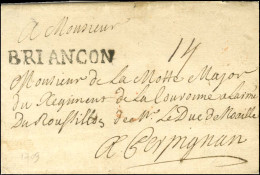 A Monsieur
BRIANCON
14
Monsieur de La Motte Major
du Regiment de la Couronne a Larmée
Du Roussillon de Mr. Le Duc de Noaille
A Perpignan